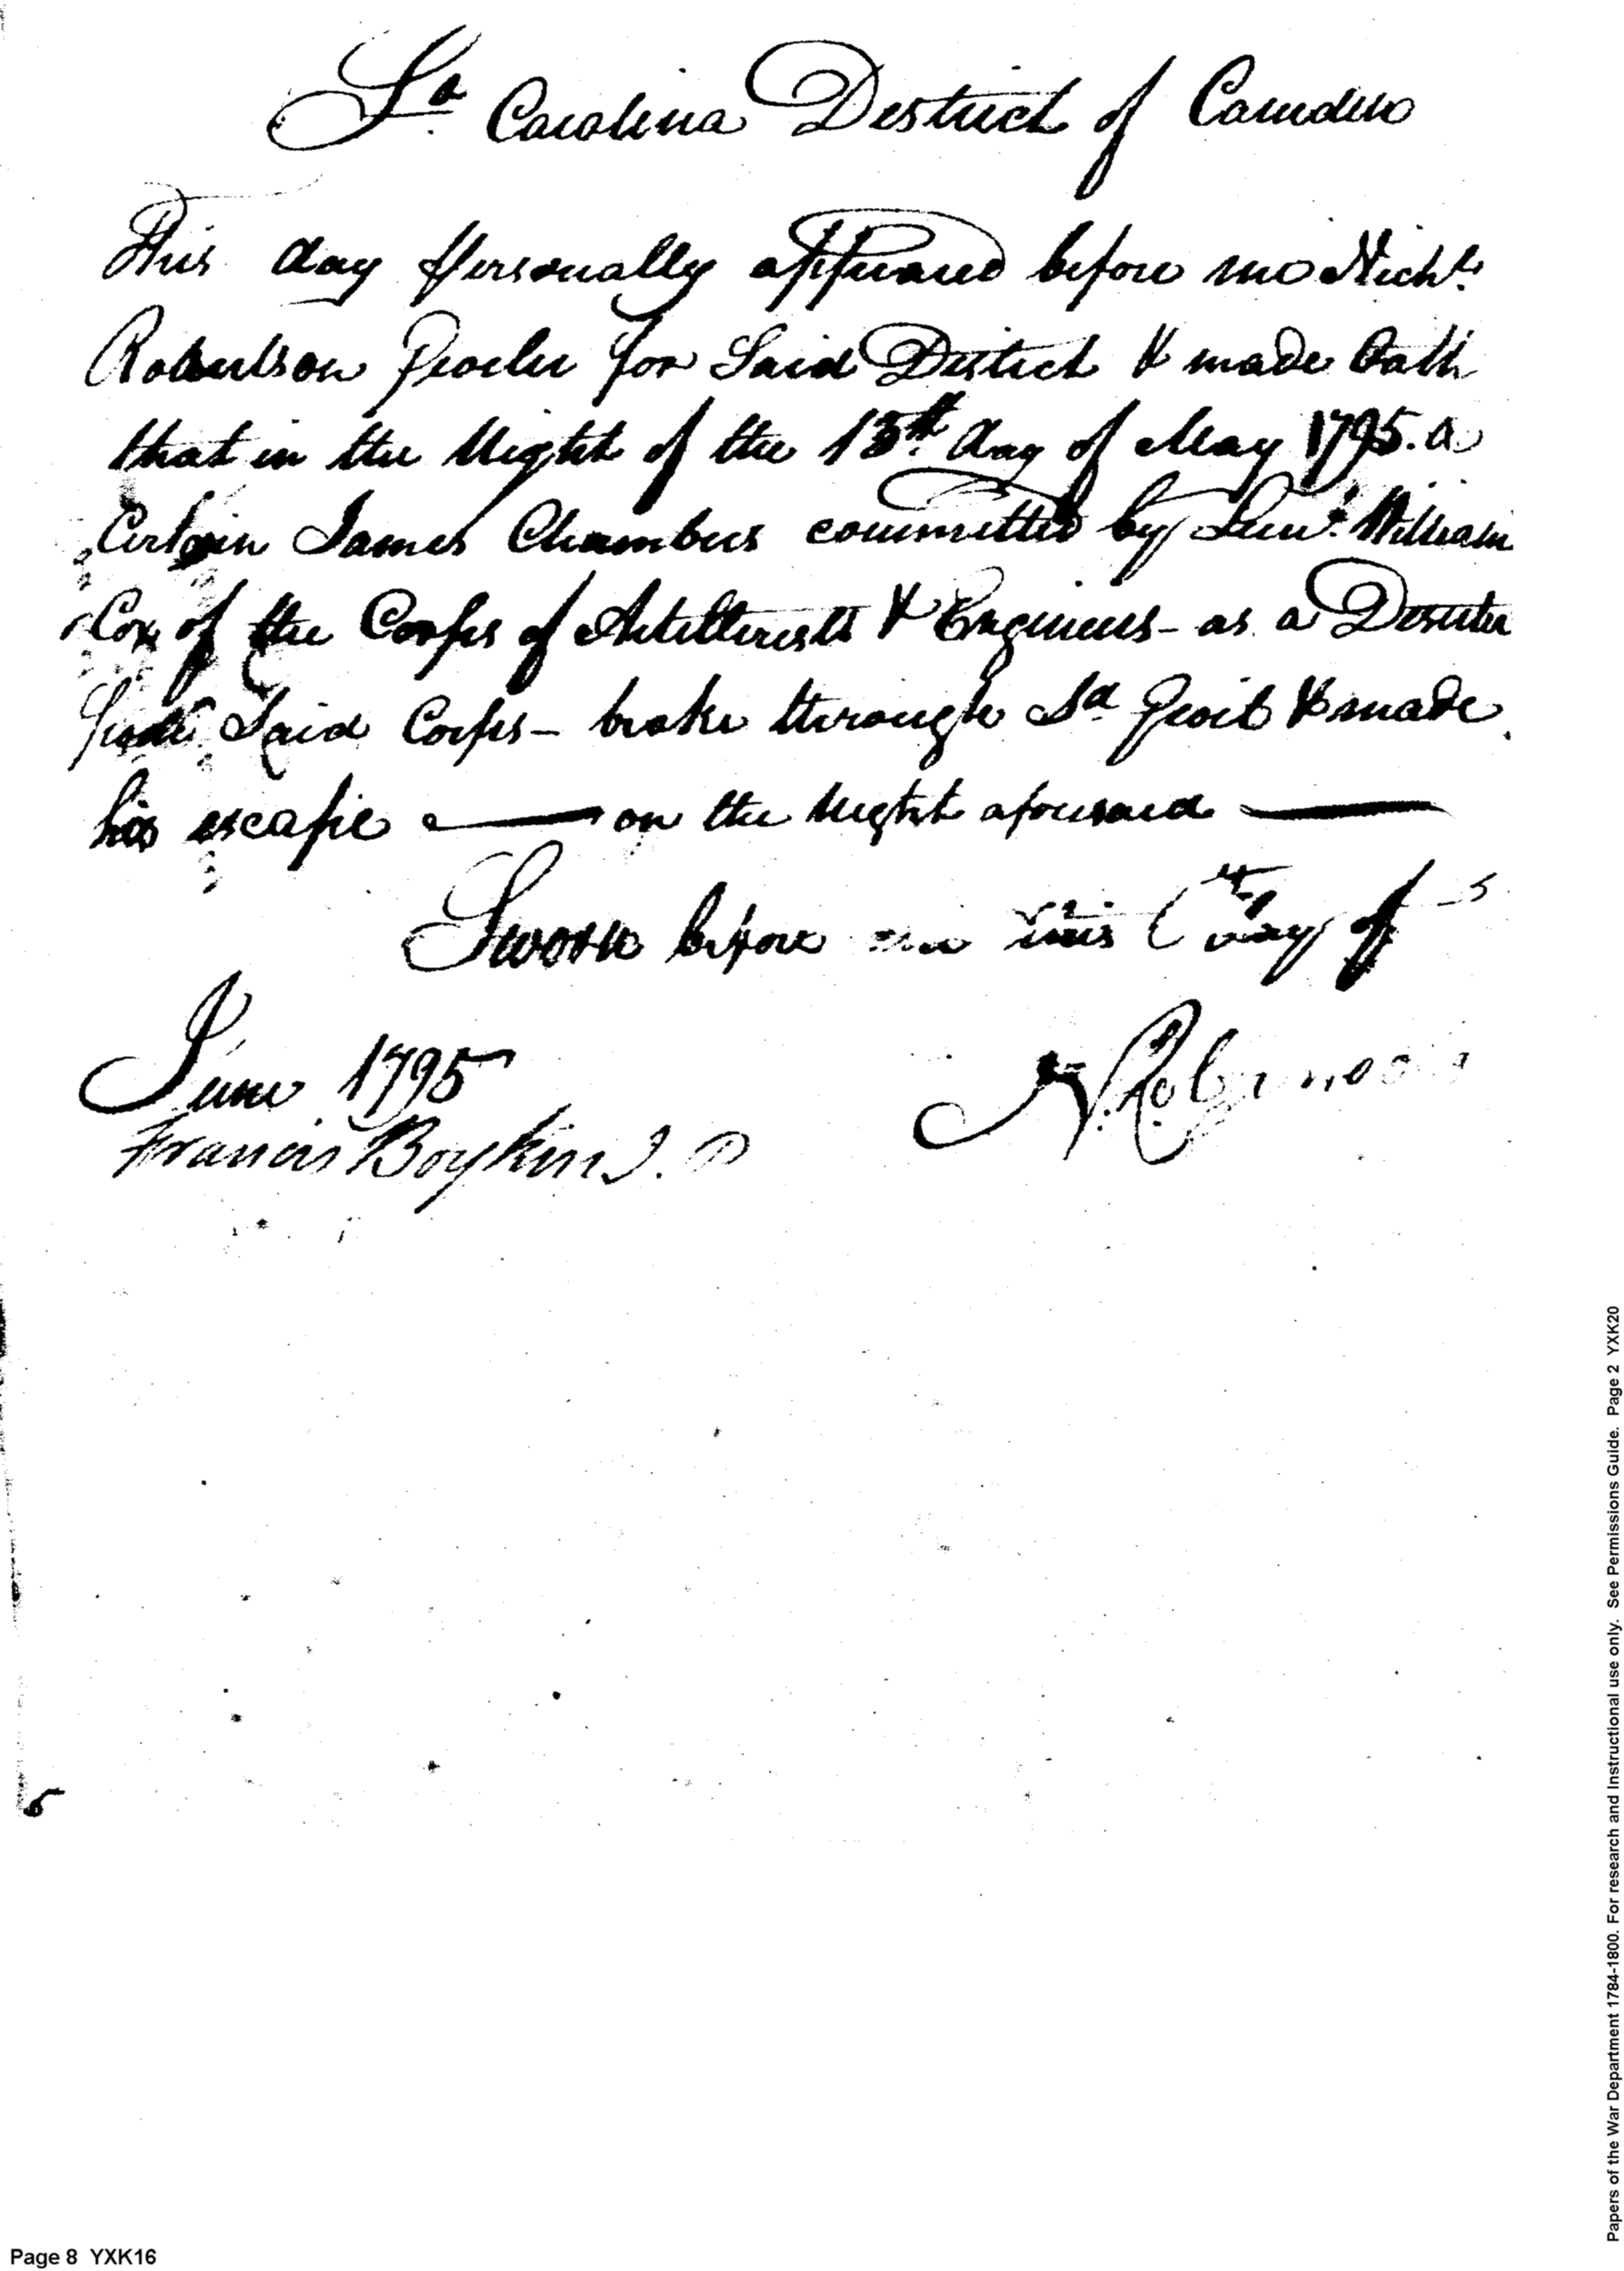 So. Carolina District of Camden
This day personally appeared before me Nichs.
Robertson Goaler for Said District & made Oath
that in the Night of the 13th. day of May 1795. a
Certain James Chambers committed by Lieut. William
Cox of the Corps of Artillerists & Engineers - as a Deserter
from Said Corps - broke through Sd. Goal & made
his escape — on the Night aforesaid —
Sworn before me this day of
June 1795
Francis Boykin J. P
Page 8 YXK16
Papers of the War Department 1784-1800. For research and Instructional use only. See Permissions Guide. Page 2 YXK20